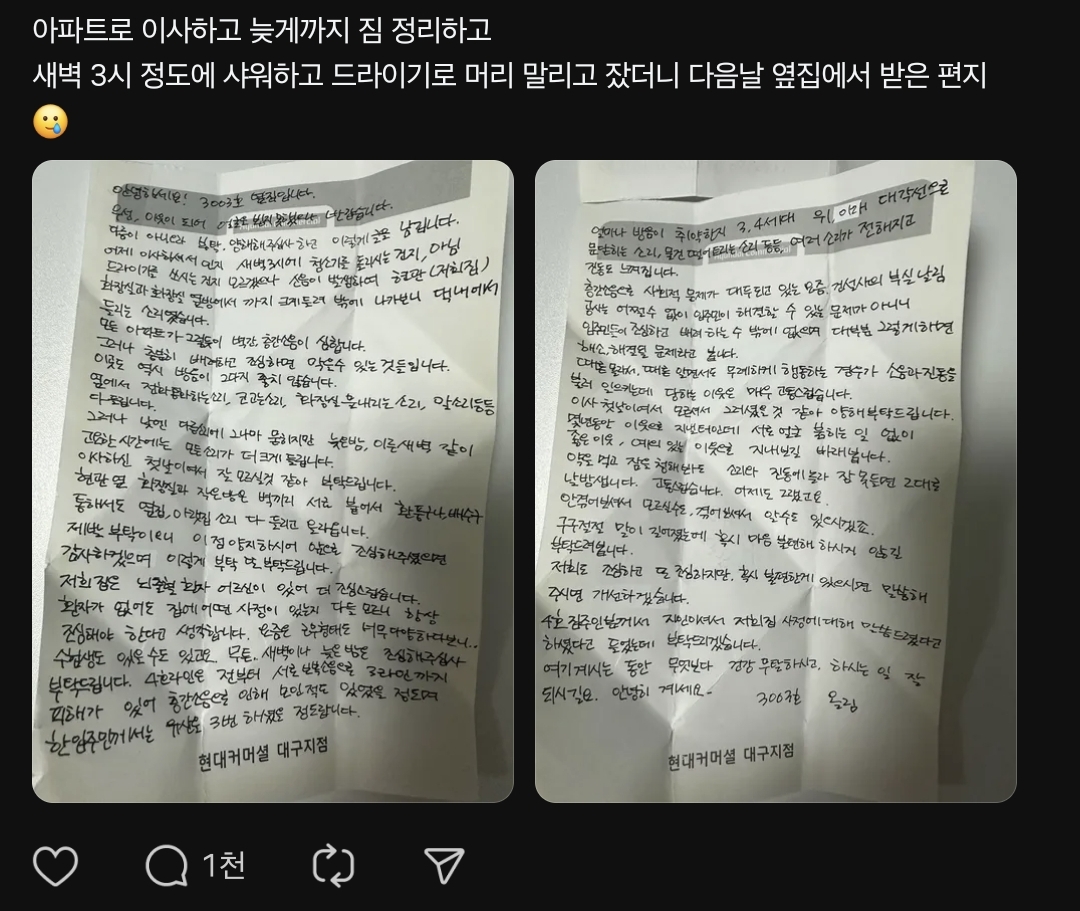 아파트로 이사하고 늦게까지 짐 정리하고
새벽 3시 정도에 샤워하고 드라이기로 머리 말리고 잤더니 다음날 옆집에서 받은 편지
안녕하세요! 3003호 옆집입니다.
우선, 이웃이 되어 반갑습니다.
다름이 아니라 부탁, 양해해주십사 하고 이렇게 글로 남깁니다.
어제 이사하셔서 인지 새벽3시에 청소기를 돌리시는 건지, 아님
드라이기를 쓰시는 건지 모르겠으나 소음이 발생하여 현관앞(저희집)
화장실과 화장실 옆방에서 까지 크게 들려 밖에 나가보니 댁내에서
들리는 소리였습니다.
모든 아파트가 그렇듯이 벽간, 층간소음이 심합니다.
그러나 충분히 배려하고 조심하면 막을수 있는 것들입니다.
이곳도 역시 방음이 그다지 좋지 않습니다.
옆에서 전화통화하는소리, 코고는소리, 화장실 물내리는 소리, 말소리등등
다 들립니다.
그러나 낮엔 다른소리에 그나마 묻히지만 늦은밤, 이른새벽 같이
고요한 시간에는 모든소리가 더 크게 들립니다.
이사하신 첫날이여서 잘 모르실것 같아 부탁드립니다.
현관 옆 화장실과 작은방은 벽끼리 서로 붙어서 환풍구나, 배수구
통해서도 옆집, 아랫집 소리 다 들리고 울라옵니다.
제발 부탁이오니 이 점 양지하시어 앞으로 조심해주셨으면
감사하겠으며 이렇게 부탁 또 부탁드립니다.
저희 집은 뇌출혈 환자 어르신이 있어 더 조심스럽습니다.
환자가 없어도 집에 어떤 사정이 있는지 다들 모르니 항상
조심해야 한다고 생각합니다. 요즘은 근무형태도 너무 다양하다보니..
수험생도 있을 수도 있고요. 무튼, 새벽이나 늦은 밤은 조심해주십사
부탁드립니다. 4호라인은 전부터 서로 반복소음으로 3라인까지
피해가 있어 층간소음으로 인해 모인적도 있었을 정도며
한 입주민께서는 이사를 3번 하셨을 정도랍니다.
현대커머셜 대구지점
얼마나 방음이 취약한지 3,4세대 위, 아래 대각선으로
문닫히는 소리, 물건 떨어트리는 소리 등등, 여러 소리가 전해지고
진동도 느껴집니다.
층간소음으로 사회적 문제가 대두되고 있는 요즘, 건설사의 부실 날림
공사는 어쩔수 없이 입주민이 해결할 수 있는 문제가 아니니
입주민들이 조심하고 배려 하는 수 밖에 없으며 대부분 그렇게하면
해소, 해결될 문제라고 봅니다.
때론 몰라서, 때론 알면서도 무례하게 행동하는 경우가 소음과 진동을
불러 일으키는데 당하는 이웃은 매우 고통스럽습니다.
이사 첫날이여서 모르셔서 그러셨을 것 같아 양해부탁드립니다.
몇년동안 이웃으로 지낼터인데 서로 얼굴 붉히는 일 없이
좋은 이웃, 예의 있는 이웃으로 지내보길 바래봅니다.
약도 먹고 잠도 청해봐도 소리와 진동에 놀라 잠 못들면 그대로
날밤샙니다. 고통스럽습니다. 어제도 그랬고요
안겪어보셔서 모르실수도, 겪어보셔서 알수도 있으시겠죠.
구구절절 말이 길어졌는데 혹시 마음 불편해 하시지 않길
부탁드려봅니다.
저희도 조심하고 또 조심하지만, 혹시 불편한게 있으시면 말씀해
주시면 개선하겠습니다.
4호 집주인분께서 지인이셔서 저희집 사정에 대해 말씀드렸다고
하셨다고 들었는데 부탁드리겠습니다.
여기 계시는 동안 무엇보다 건강 무탈하시고, 하시는 일 잘
되시길요. 안녕히 계세요-
3003호 올림
현대커머셜 대구지점
1천